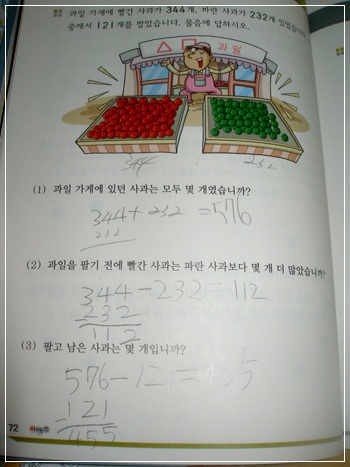 과일 가게에 빨간 사과가 344개, 파란 사과가 232개 있었습니다.
중에서 121개를 팔았습니다. 물음에 답하시오.
과일
344 232
(1) 과일 가게에 있던 사과는 모두 몇 개였습니까?
344+232=576
212
(2) 과일을 팔기 전에 빨간 사과는 파란 사과보다 몇 개 더 많았습니까?
344-232=112
232
112
(3) 팔고 남은 사과는 몇 개입니까?
576-121=455
121
455
72